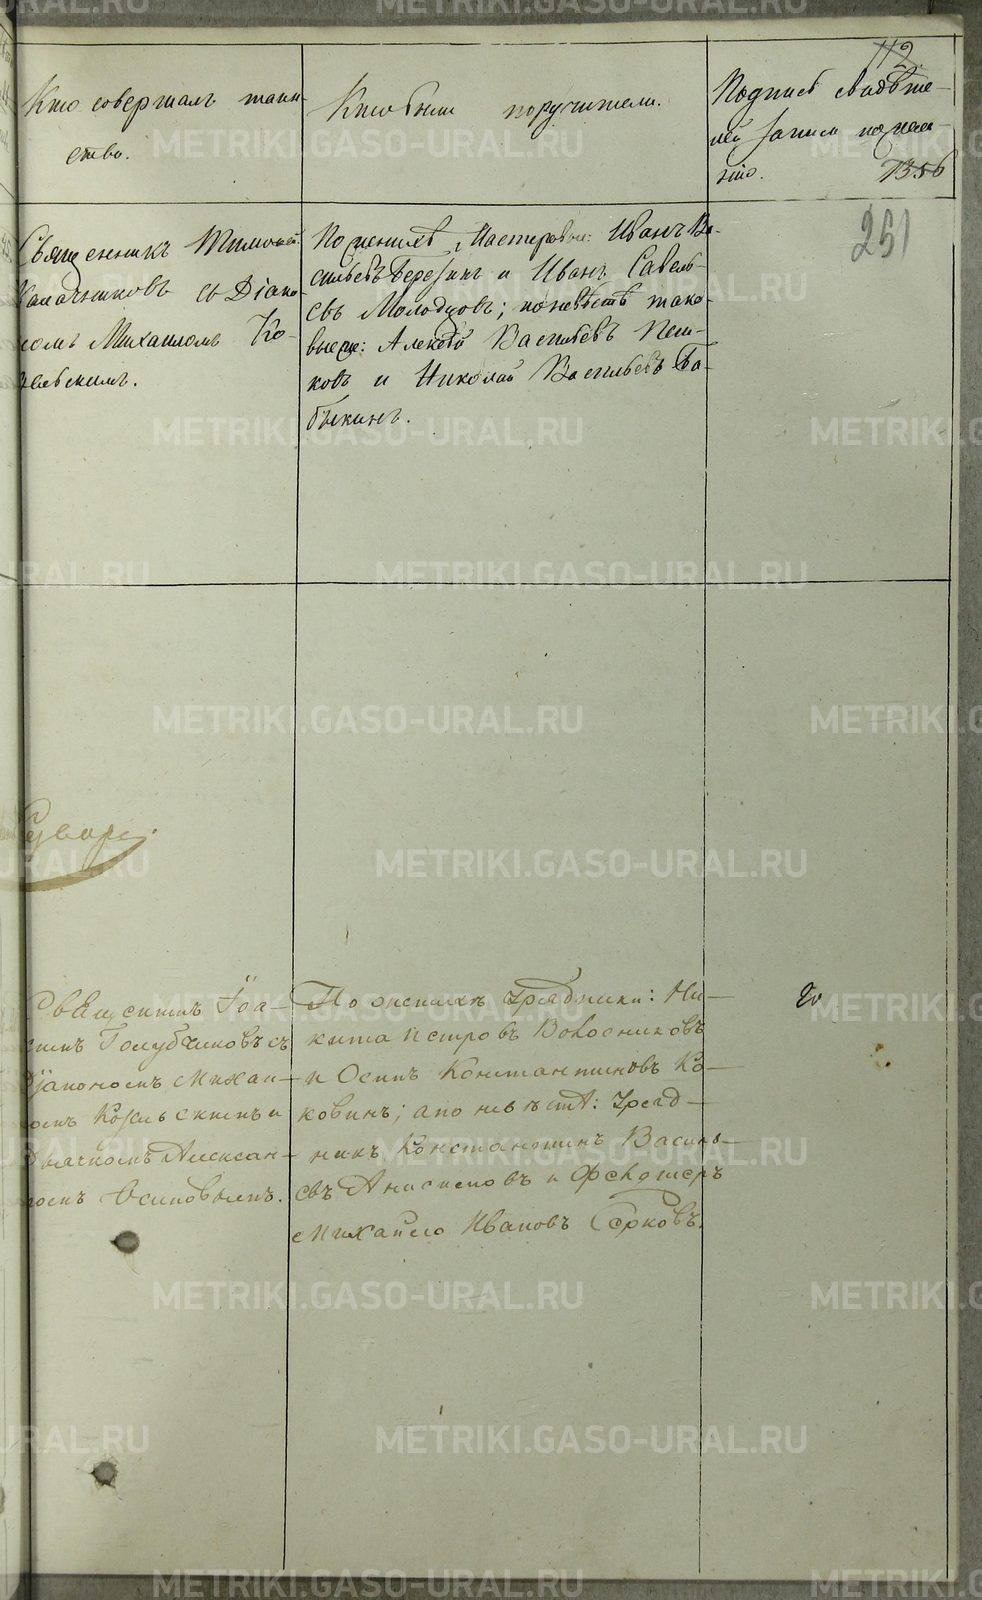 112
Кто совершалъ таин-
ство.
Кто были поручители.
Подпись свидѣте-
лей записи по жела-
нію.
1356
251
Священникъ Тимофей
Калачниковъ съ Діако-
номъ Михаиломъ Ко-
зельскимъ.
По женихѣ, Мастеровые: Иванъ Ва-
сильевъ Березинъ и Иванъ Савель-
евъ Молодцовъ; по невѣстѣ тако-
выеже: Алексѣй Васильевъ Пеш-
ковъ и Николай Васильевъ Ба-
быкинъ.
Священникъ Іоа-
ннъ Голубчиковъ съ
Діакономъ Михаи-
ломъ Козельскимъ и
Дьячкомъ Алексан-
ромъ Осиповымъ.
По женихѣ Урядники: Ни-
кита Петровъ Волосниковъ
и Осипъ Константиновъ Ко-
ковинъ; а по невѣстѣ: Уряд-
никъ Константинъ Василь-
евъ Анисимовъ и Фельдшеръ
Михайло Ивановъ Серковъ.
METRIKI.GASO-URAL.RU